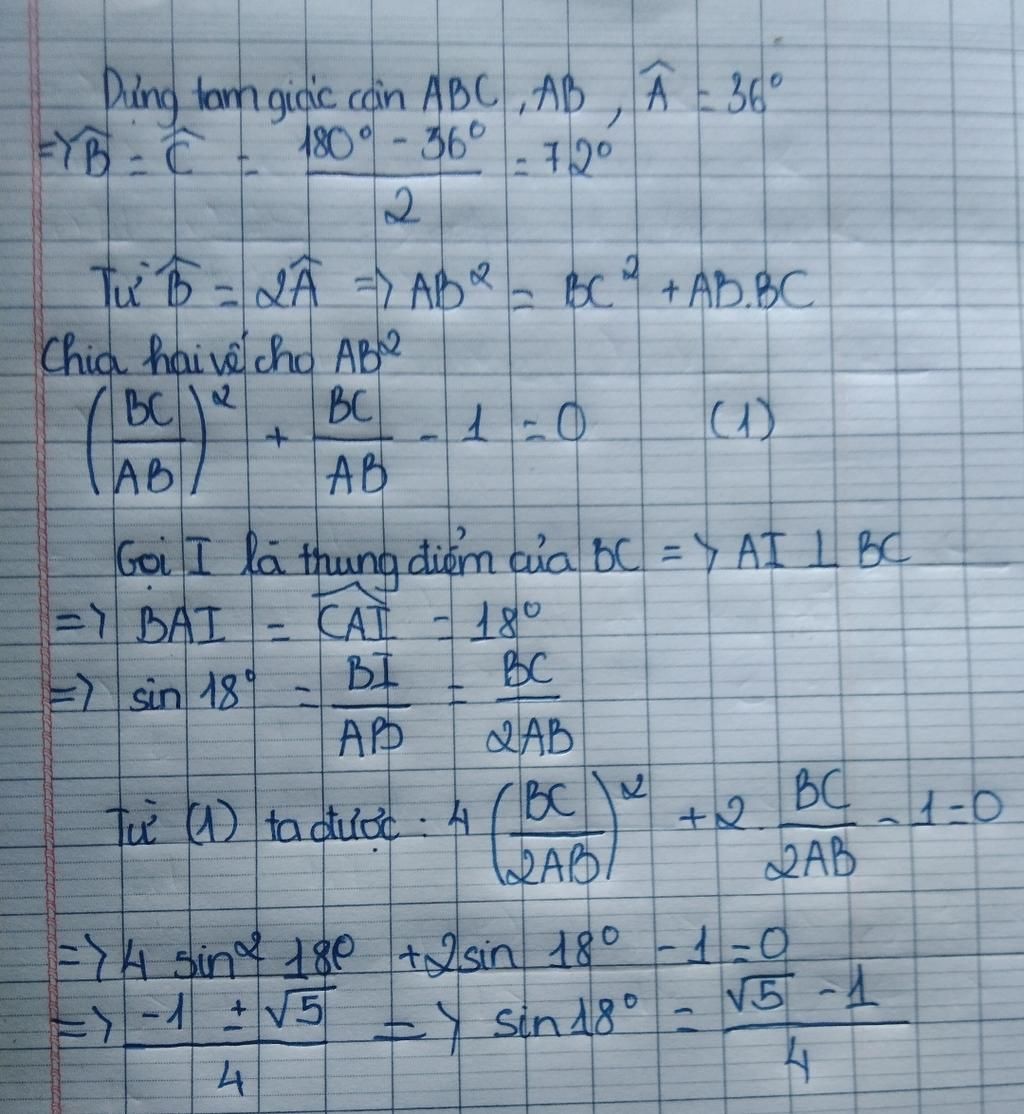 Dựng tam giác cân ABC, AB, Â = 36°
=> B̂ = Ĉ = (180° - 36°)/2 = 72°
Từ B̂ = 2Â => AB² = BC² + AB.BC
Chia hai vế cho AB²
(BC/AB)² + BC/AB - 1 = 0 (1)
Gọi I là thung điểm của BC => AI ⊥ BC
=> BAI = \widehat{CAI} = 18°
=> sin 18° = BI/AB = BC/2AB
Từ (1) ta được : 4 (BC/2AB)² + 2. BC/2AB - 1 = 0
=> 4 sin² 18° + 2 sin 18° - 1 = 0
=> (-1 ± √5)/4 => sin 18° = (√5 - 1)/4